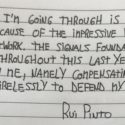 I'M GOING THROUGH IS
CAUSE OF THE IMPRESSIVE
WORK. THE SIGNALS FOUNDA
THROUGHOUT THIS LAST YE
ME, NAMELY COMPENSATIN
RELESSLY TO DEFEND MY
Rui Pinto